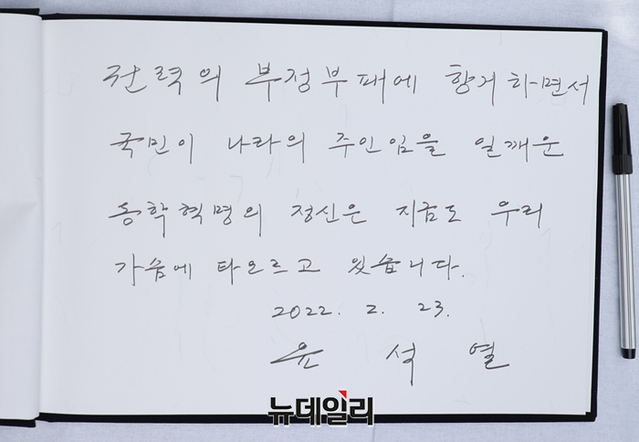 권력의 부정부패에 항거하면서
국민이 나라의 주인임을 일깨운
동학혁명의 정신은 지금도 우리
가슴에 타오르고 있습니다.
2022. 2. 23.
윤 석 열
뉴데일리